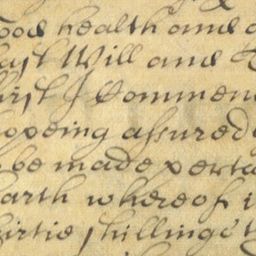 ood health and
Last Will and
first I Commend
hopeing assured
be made parta
earth whereof i
thirtie shillings t